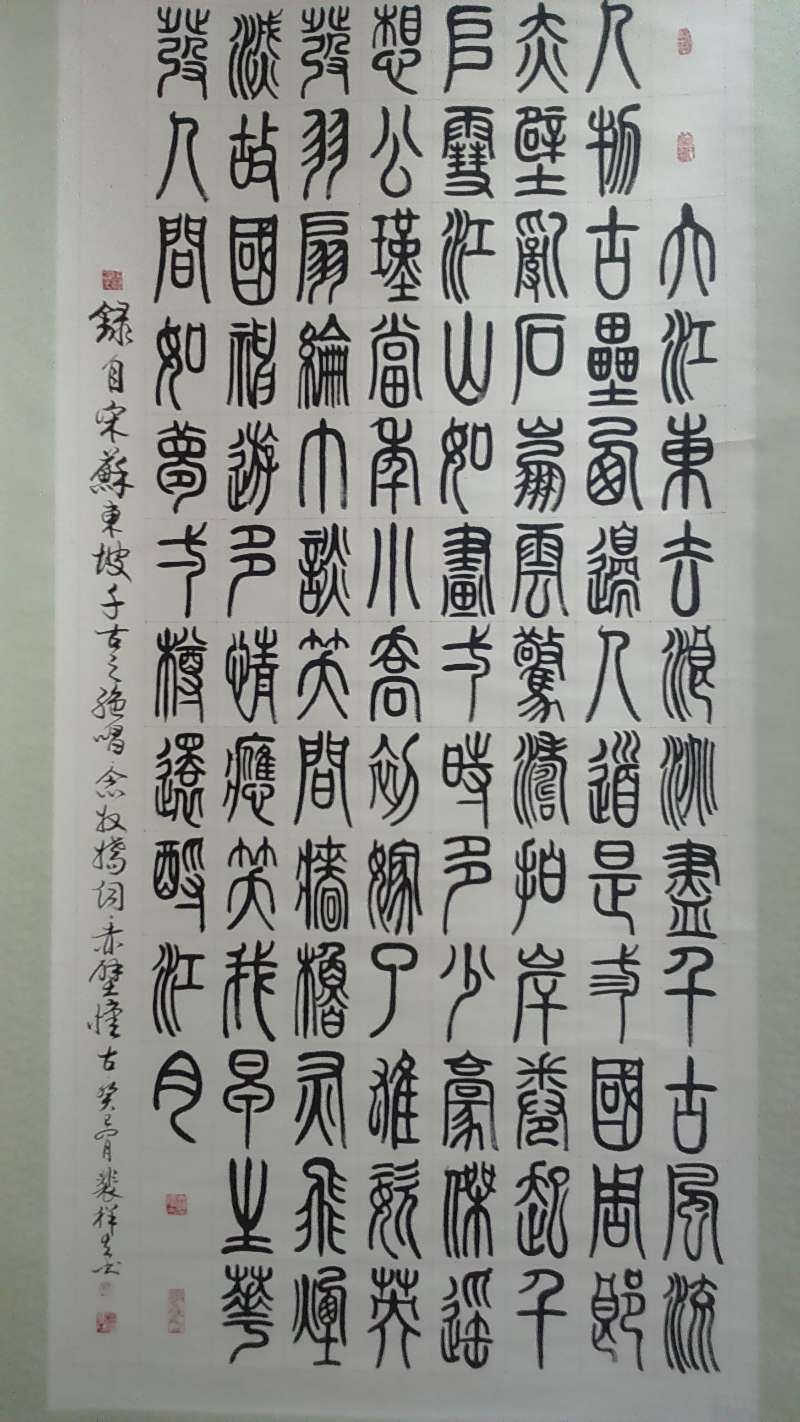 大江東去浪淘盡千古風流
人物古壘西邊人道是三國周郎
赤壁亂石崩雲驚濤拍岸卷起千
堆雪江山如畫一時多少豪傑遙
想公瑾當年小喬初嫁了雄姿英
發羽扇綸巾談笑間檣櫓灰飛煙
滅故國神遊多情應笑我早生華
發人間如夢一樽還酹江月
錄自宋蘇東坡千古之絕唱念奴嬌詞赤壁懷古癸巳月裴祥书